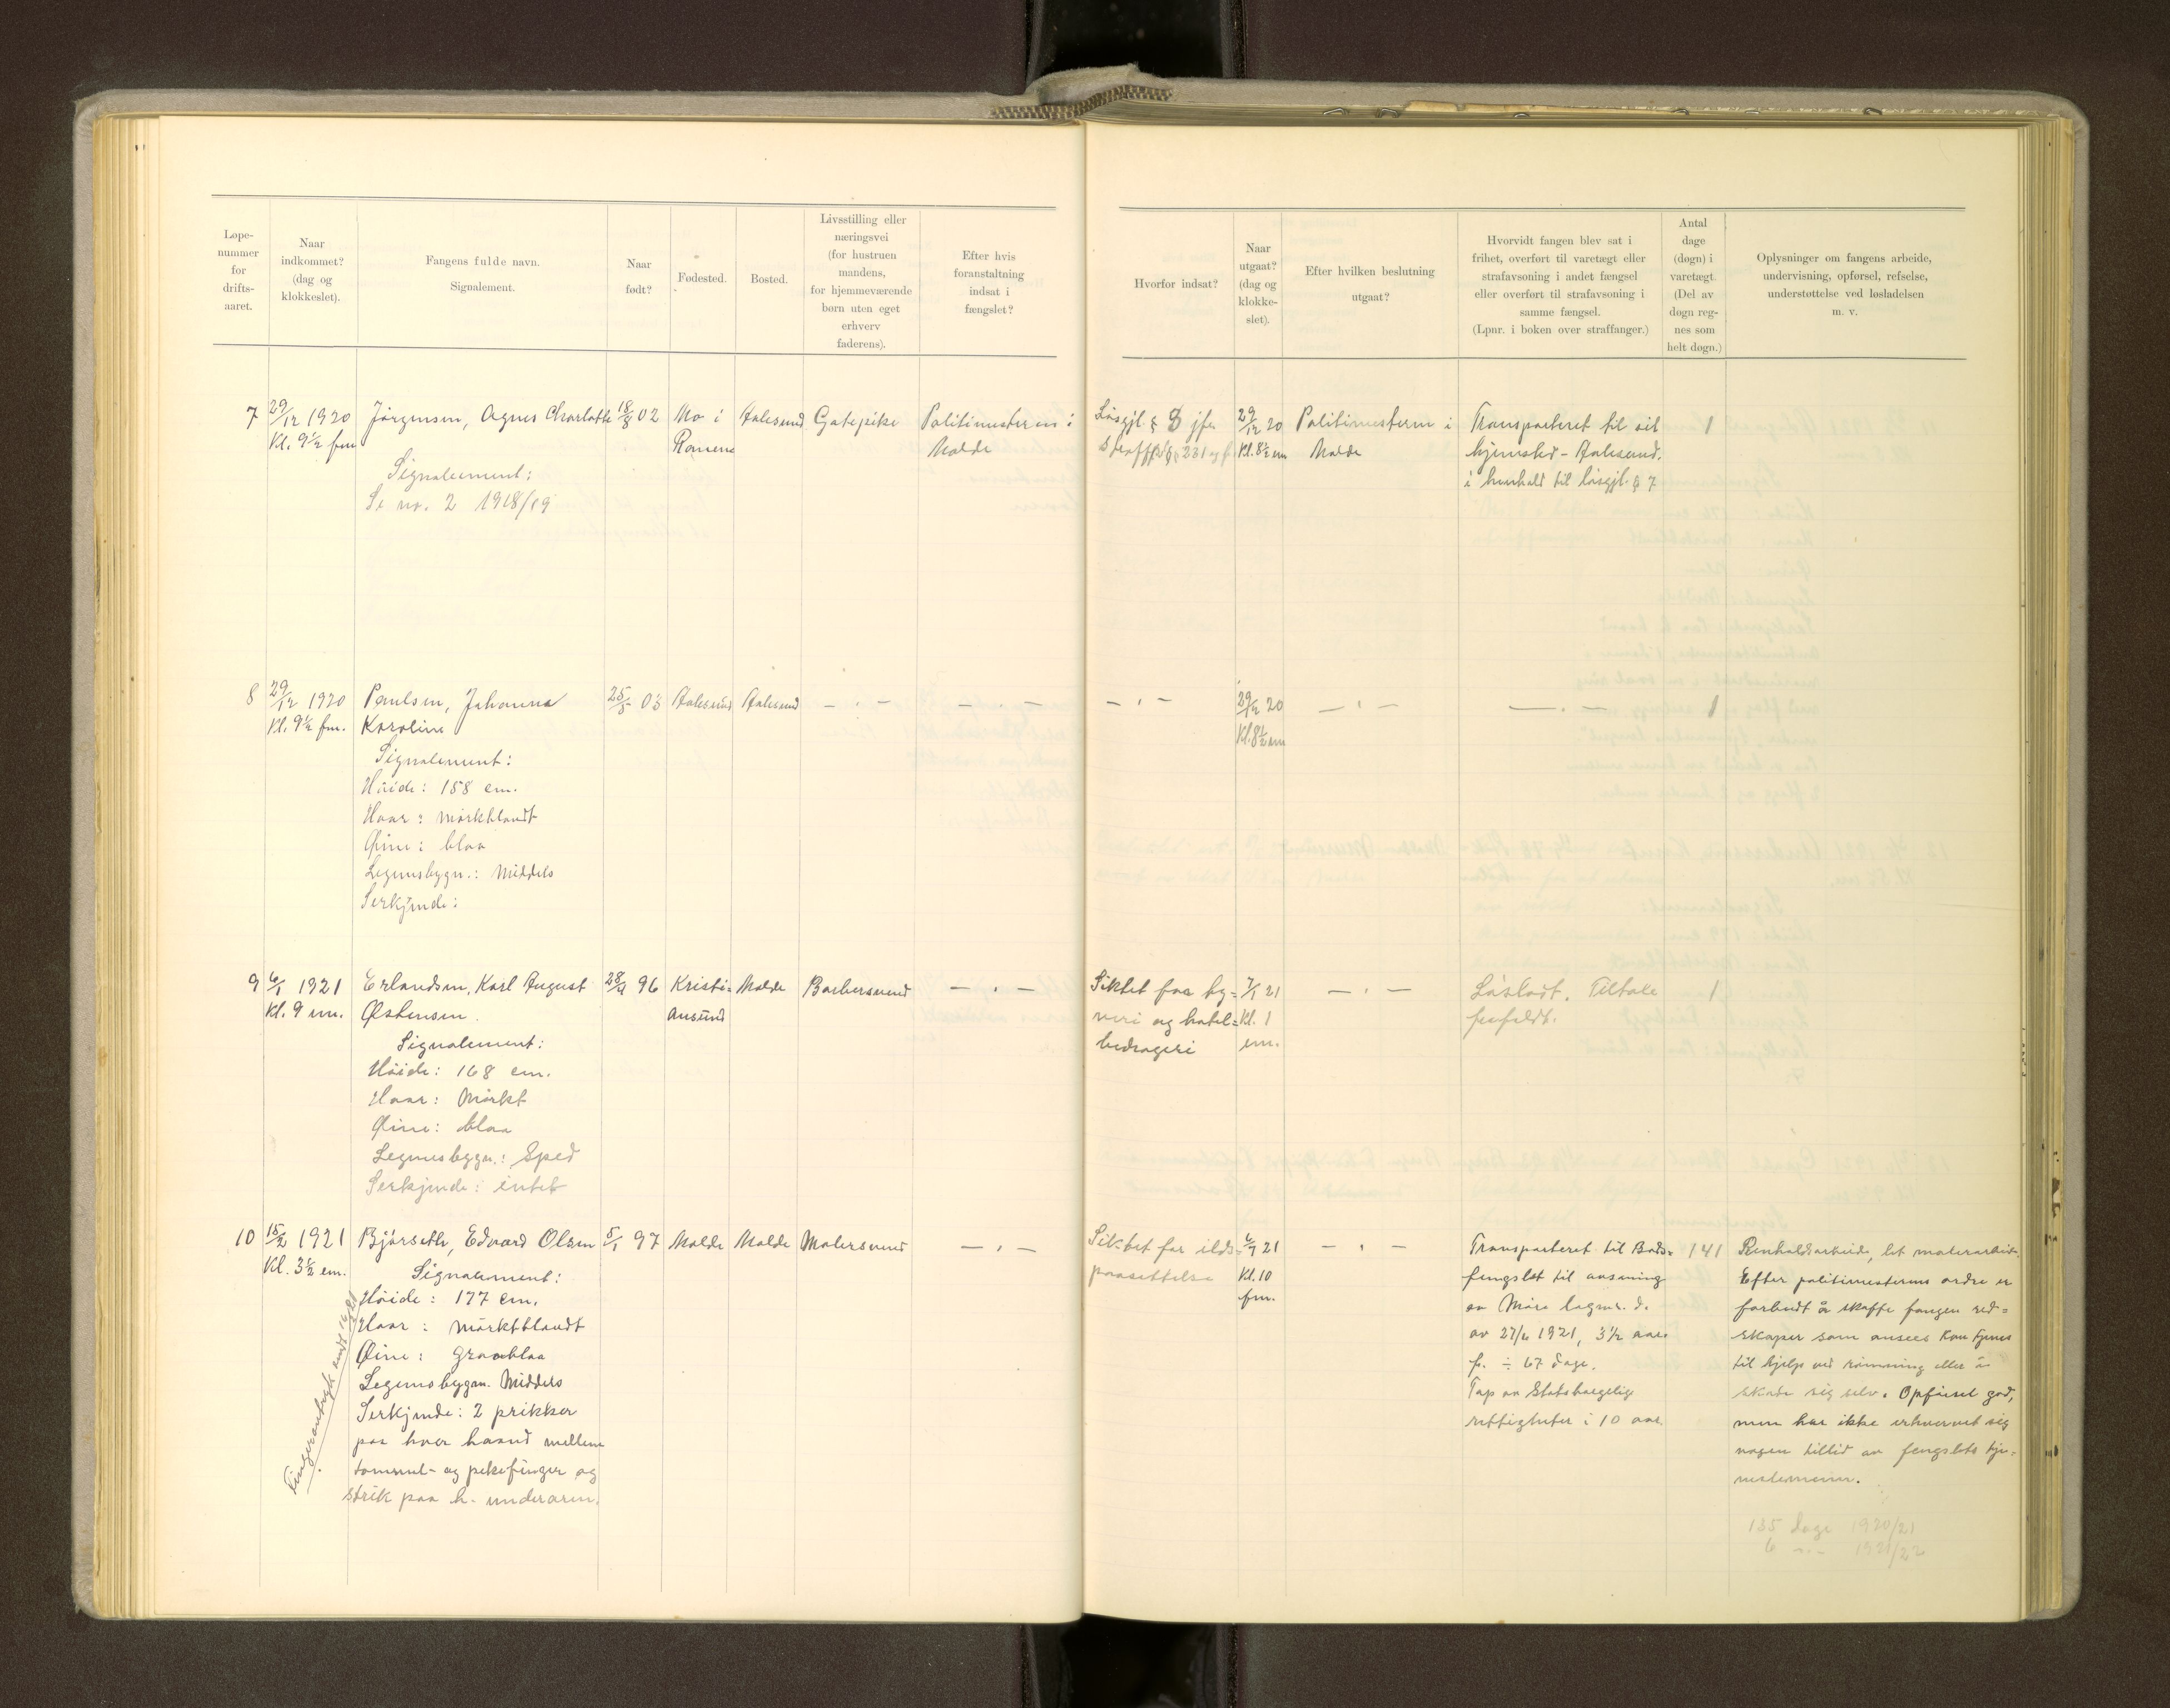 Løpe-
nummer
for
drifts-
aaret.
Naar
indkommet?
(dag og
klokkeslet).
Fangens fulde navn.
Signalement.
Naar
født?
Fødested.
Bosted.
Livsstilling eller
næringsvei
(for hustruen
mandens,
for hjemmeværende
børn uten eget
erhverv
faderens).
Efter hvis
foranstaltning
indsat i
fængslet?
Hvorfor indsat?
Naar
utgaat?
(dag og
klokke-
slet).
Efter hvilken beslutning
utgaat?
Hvorvidt fangen blev sat i
frihet, overført til varetægt eller
strafavsoning i andet fængsel
eller overført til strafavsoning i
samme fængsel.
(Lpnr. i boken over straffanger.)
Antal
dage
(døgn) i
varetægt.
(Del av
døgn reg-
nes som
helt døgn.)
Oplysninger om fangens arbeide,
undervisning, opførsel, refselse,
understøttelse ved løsladelsen
m. v.
7
29/12 1920
Kl. 9½ fm
Jørgensen, Agnes Charlotte
Signalement:
Se nr. 2 1918/19
18/8 02
Mo i
Ranen
Aalesund
Gatepike
Politimesteren i
Molde
Løsgjl. § 8 jfr.
29/12 20
Kl. 8½ em
Politimesteren i
Molde
Transporteret til sit
hjemsted - Aalesund.
i henhold til løsgjl. § 7
1
8
29/12 1920
Kl. 9½ fm.
Paulsen, Johanna
Karoline
Signalement:
Høide: 158 cm.
Haar: mørkblondt
Øine: blaa
Legemsbygn.: Middels
Serkjende:
25/5 03
Aalesund
Aalesund
— " —
— " —
— " —
29/12 20
Kl. 8½ em
— " —
— " —
1
9
6/1 1921
Kl. 9 em.
Erlandsen, Karl August
Østensen.
Signalement:
Høide: 168 cm.
Haar: Mørkt
Øine: blaa
Legemsbygn.: Sped
Serkjende: intet
28/9 96
Kristi=
ansund
Molde
Barbersvend
— " —
Siktet for ty=
veri og hotel=
bedrageri
7/1 21
Kl. 1
em.
— " —
Løsladt. Tiltale
frafaldt.
1
10
15/2 1921
Kl. 3½ em.
Bjørseth, Edvard Olsen
Signalement:
Høide: 177 cm.
Haar: mørktblondt
Øine: graablaa
Legemsbygn. Middels
Serkjende: 2 prikker
paa hver haand mellem
tommel- og pekefinger og
strik paa h. underarm.
5/1 97
Molde
Molde
Malersvend
— " —
Siktet for ilds=
paasettelse
6/7 21
Kl. 10
fm.
— " —
Transporteret til Bods=
fengslet til avsoning
av Møre lagmr. d.
av 27/6 1921, 3½ aars
f. ÷ 67 dage.
Tap av Statsborgerlige
rettigheter i 10 aar.
141
Renholdsarbeide, let malerarbeide.
Efter politimesterens ordre er
forbudt å skaffe fangen red=
skaper som ansees kan tjenes
til hjelp ved rømning eller å
skade sig selv. Opførsel god,
men har ikke erhvervet sig
nogen tillid av fengslets tje-
nestemenn.
135 dage 1920/21
6 —"— 1921/22